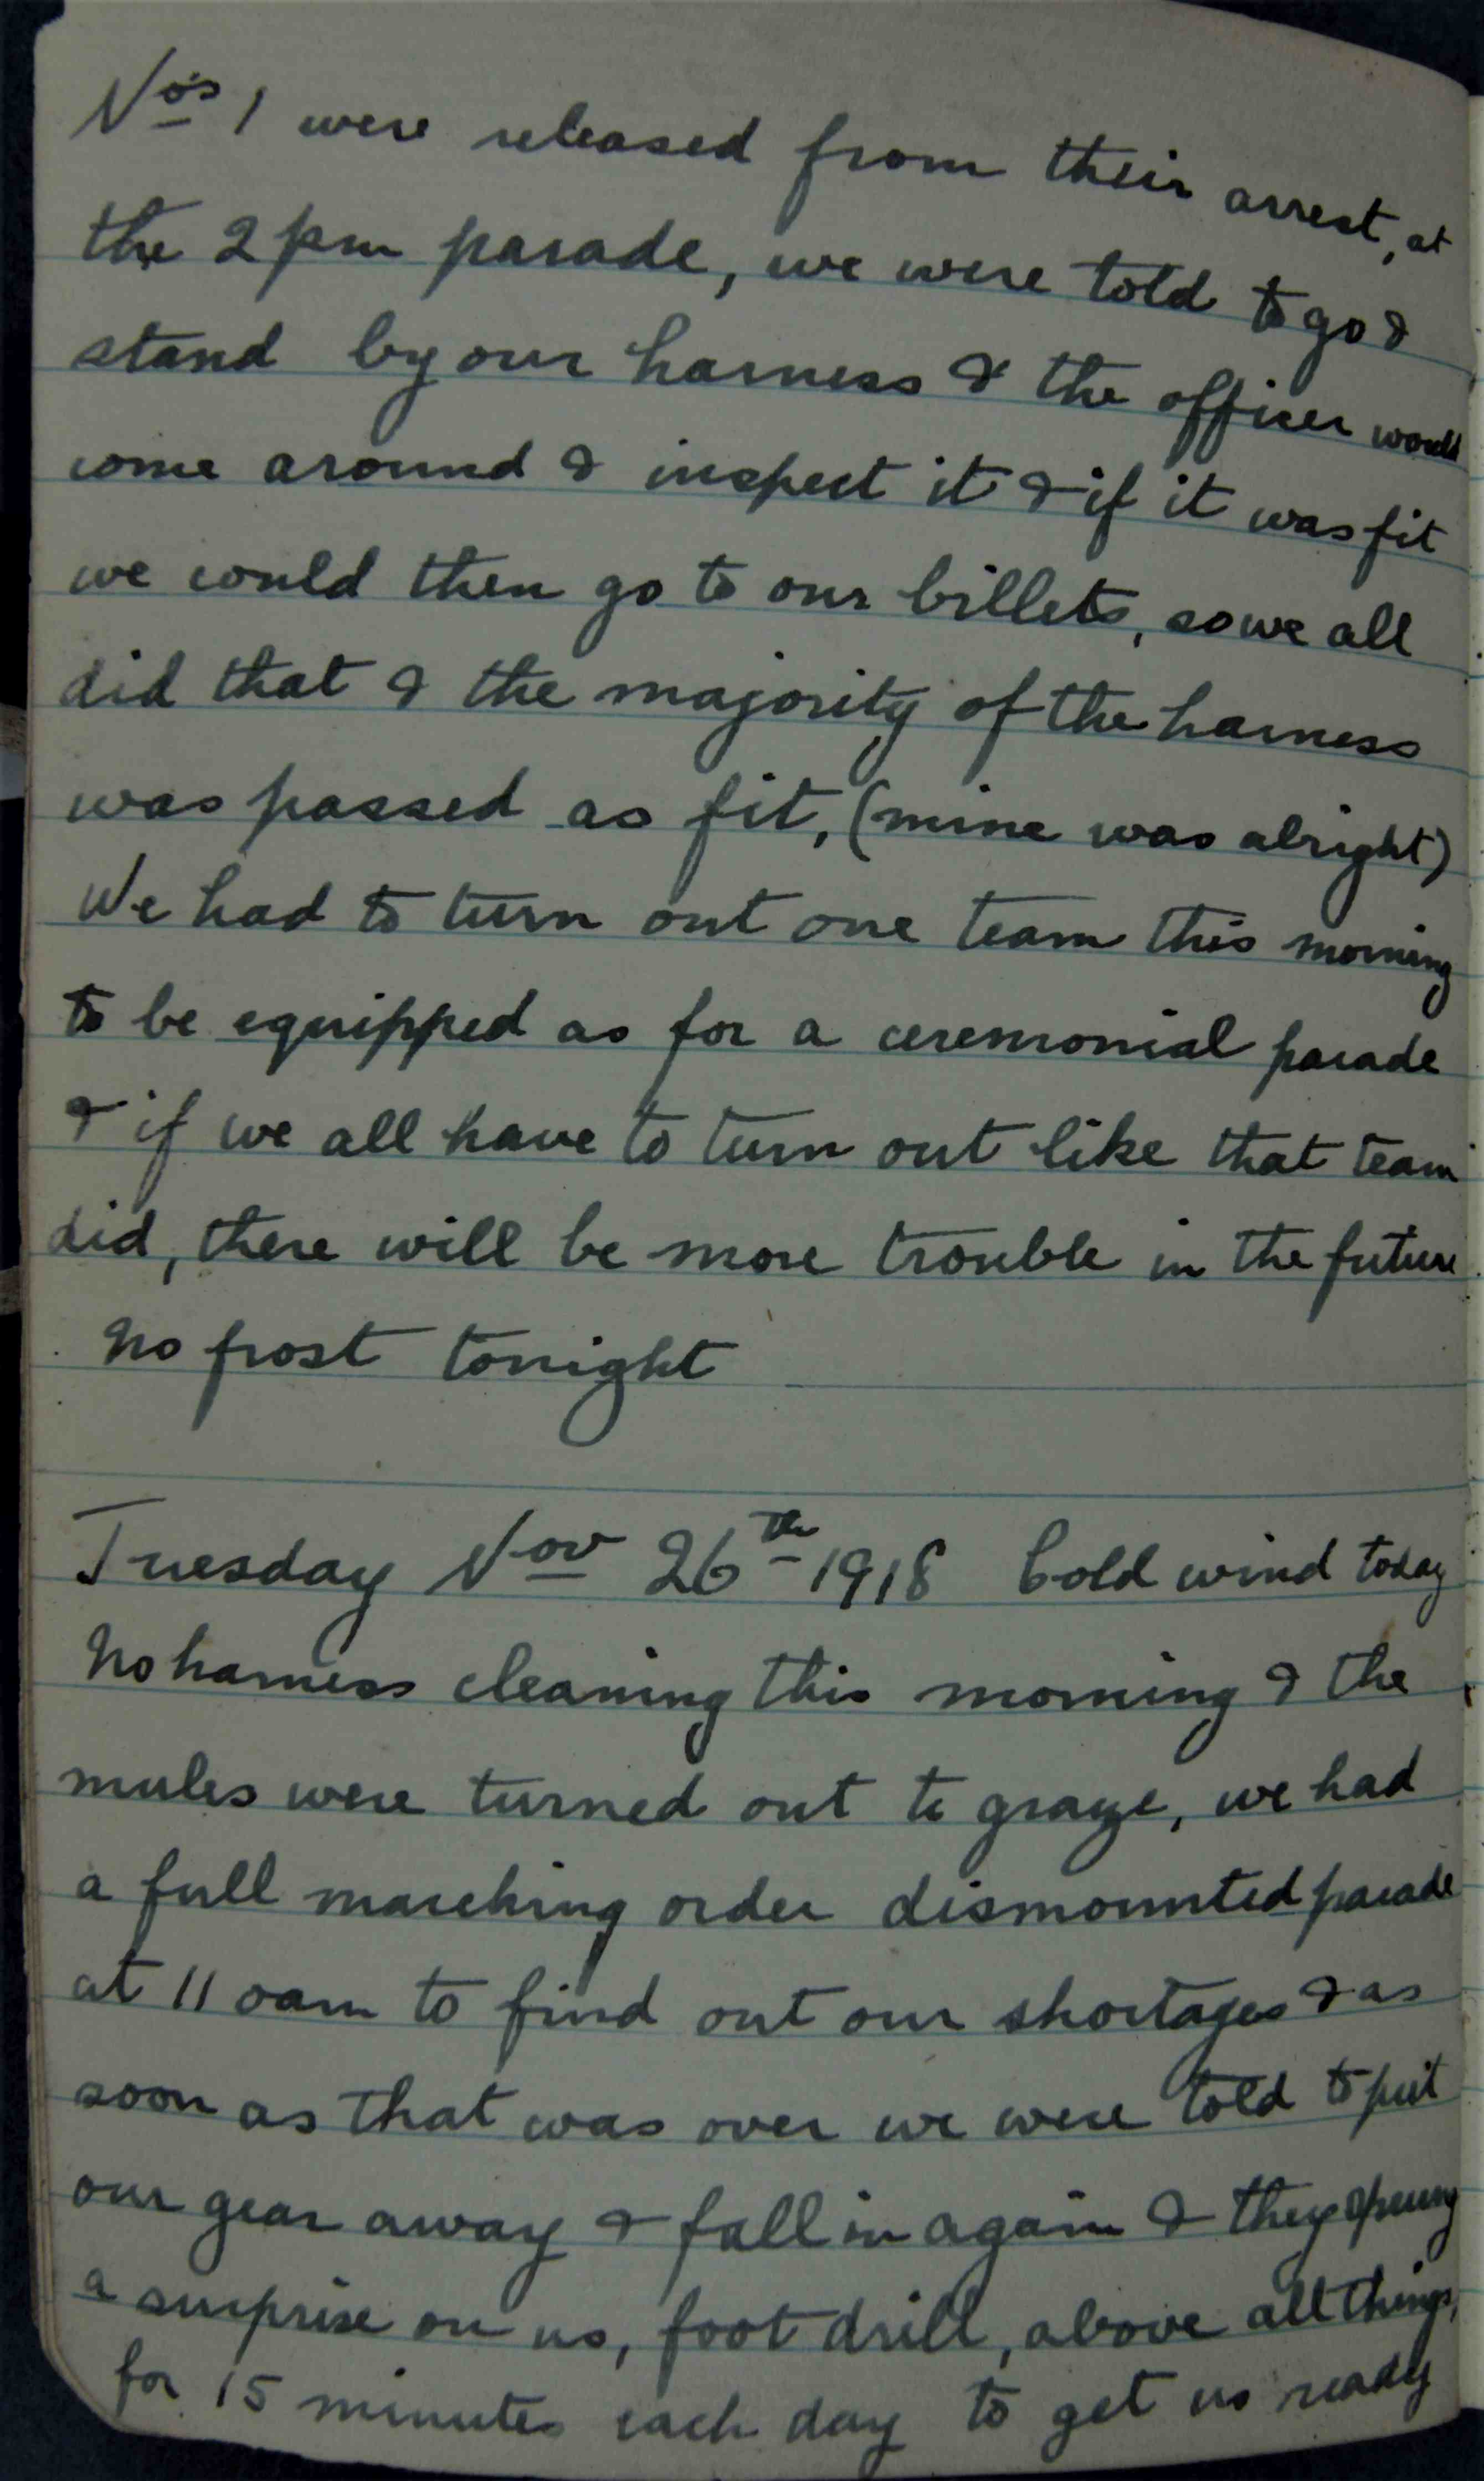 Nos 1 were released from their arrest, at
the 2 pm parade, we were told to go &
stand by our harness & the officer would
come around & inspect it & if it was fit
we would then go to our billets, so we all
did that & the majority of the harness
was passed as fit, (mine was alright)
We had to turn out one team this morning
to be equipped as for a ceremonial parade
& if we all have to turn out like that team
did, there will be more trouble in the future
No frost tonight
Tuesday Nov 26th 1918 Cold wind today
No harness cleaning this morning & the
mules were turned out to graze, we had
a full marching order dismounted parade
at 11 oam to find out our shortages & as
soon as that was over we were told to put
our gear away & fall in again & they sprung
a surprise on us, foot drill, above all things,
for 15 minutes each day to get us ready